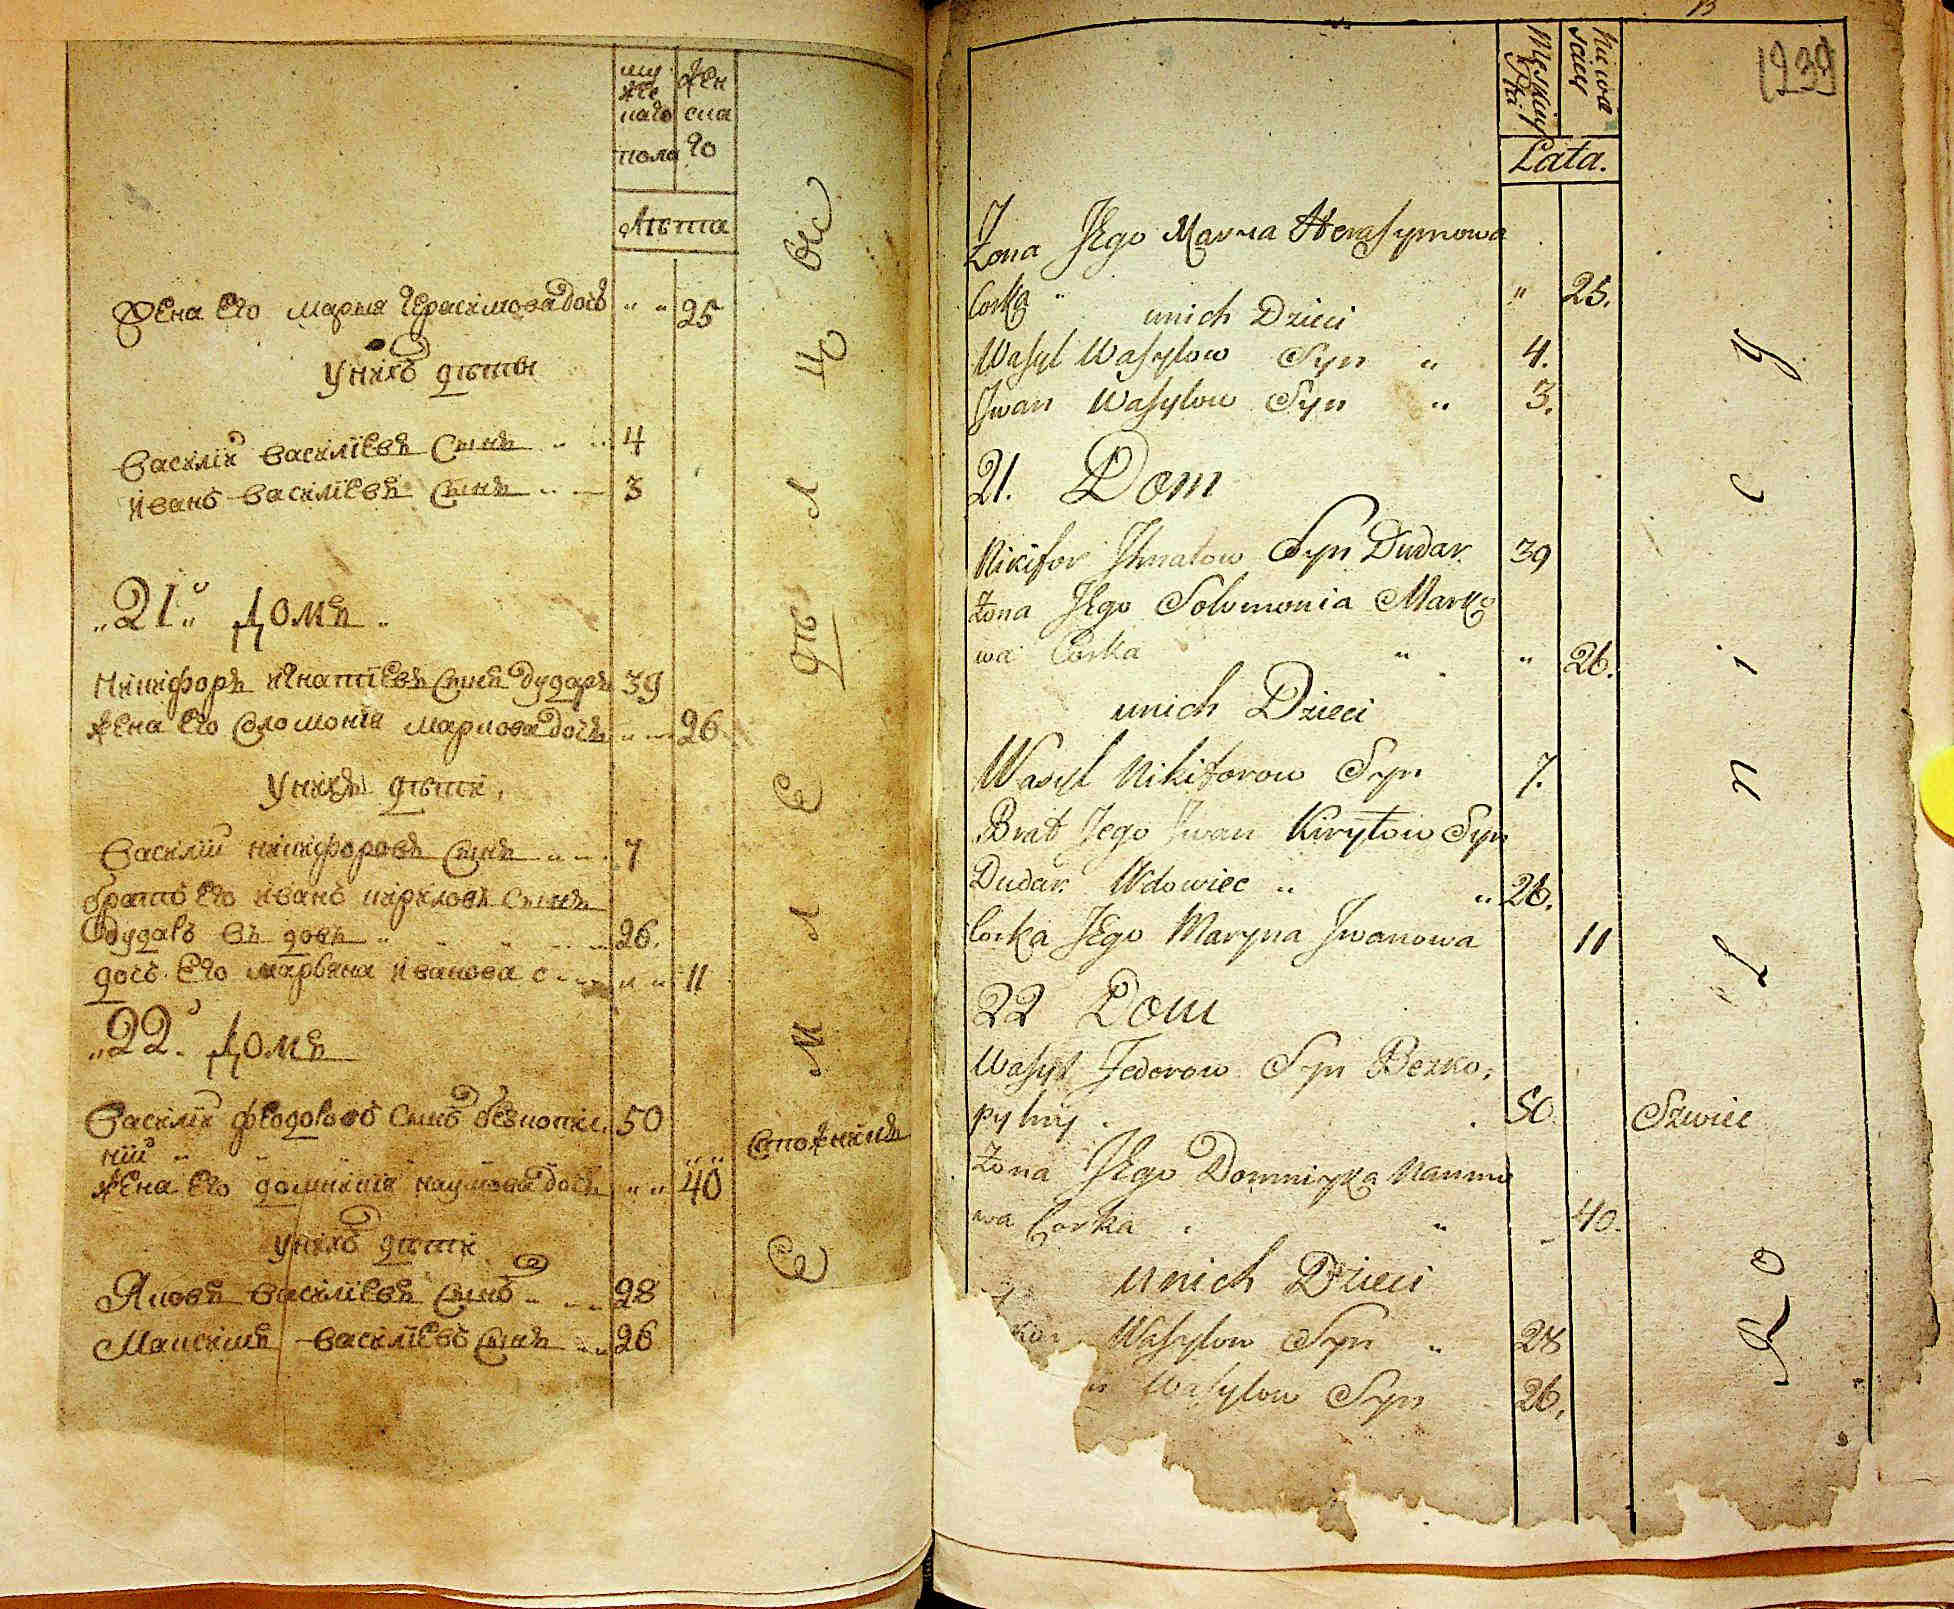 му
жес
каго
пола
жен
ска
го
лѣта
Жена Его Марья Герасимова дочь " " 25
У нихъ дѣти
Василій Василіевъ Сынъ 4
Иванъ Василіевъ Сынъ 3
"21" Домъ
Никифоръ Игнатіевъ Сынъ Дударъ 39
Жена Его Соломонія Маркова дочь 26
У нихъ дѣти
Василій Никифоровъ Сынъ 7
братъ Его Иванъ Кириловъ Сынъ
Дударь вдовъ 26.
дочь Его Марьяна Иванова 11
"22. Домъ
Василій Феодоровъ Сынъ безкопил
ній 50
Жена Его Домникія Наумова дочь " " 40
У нихъ дѣти
Яковъ Василіевъ Сынъ 28
Максимъ Василіевъ Сынъ 26
З Е М Л Е дѣ Л Ц ы
Męskiey Płci
Niewa
sciey
Lata.
1239
Żona JEgo Marya Herasymowa
Corka " " 25.
unich Dzieci
Wasyl Wasylow Syn " 4.
Jwan Wasylow Syn " 3.
21. Dom
Nikifor Jhnatow Syn Dudar 39
Żona JEgo Solomonia Marko
wa Corka " " 26.
unich Dzieci
Wasyl Nikiforow Syn 7.
Brat Jego Jwan Kiryłow Syn
Dudar Wdowiec " " 26.
Corka JEgo Maryna Jwanowa 11
22 Dom
Wasyl Fedorow Syn Bezko,
pylny 50 Szwiec
Żona JEgo Domnicyka Naumo
wa Corka " 40.
unich Dzieci
Wasylow Syn " 28
Wasylow Syn 26.
R o l n i c y